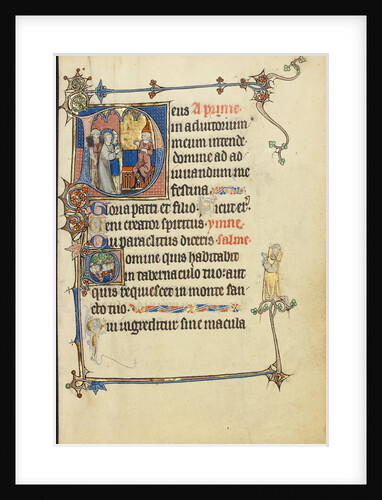 Deus A prime
in adiutorium
meum intende
domine ad ad
iuuandum me
festina
Gloria patri et filio Sicut er
Veni creator spiritus ymne
Qui paraclitus diceris Salme
Domine quis habitabit
in tabernaculo tuo: aut
quis requiescet in monte san
cto tuo
Qui ingreditur sine macula